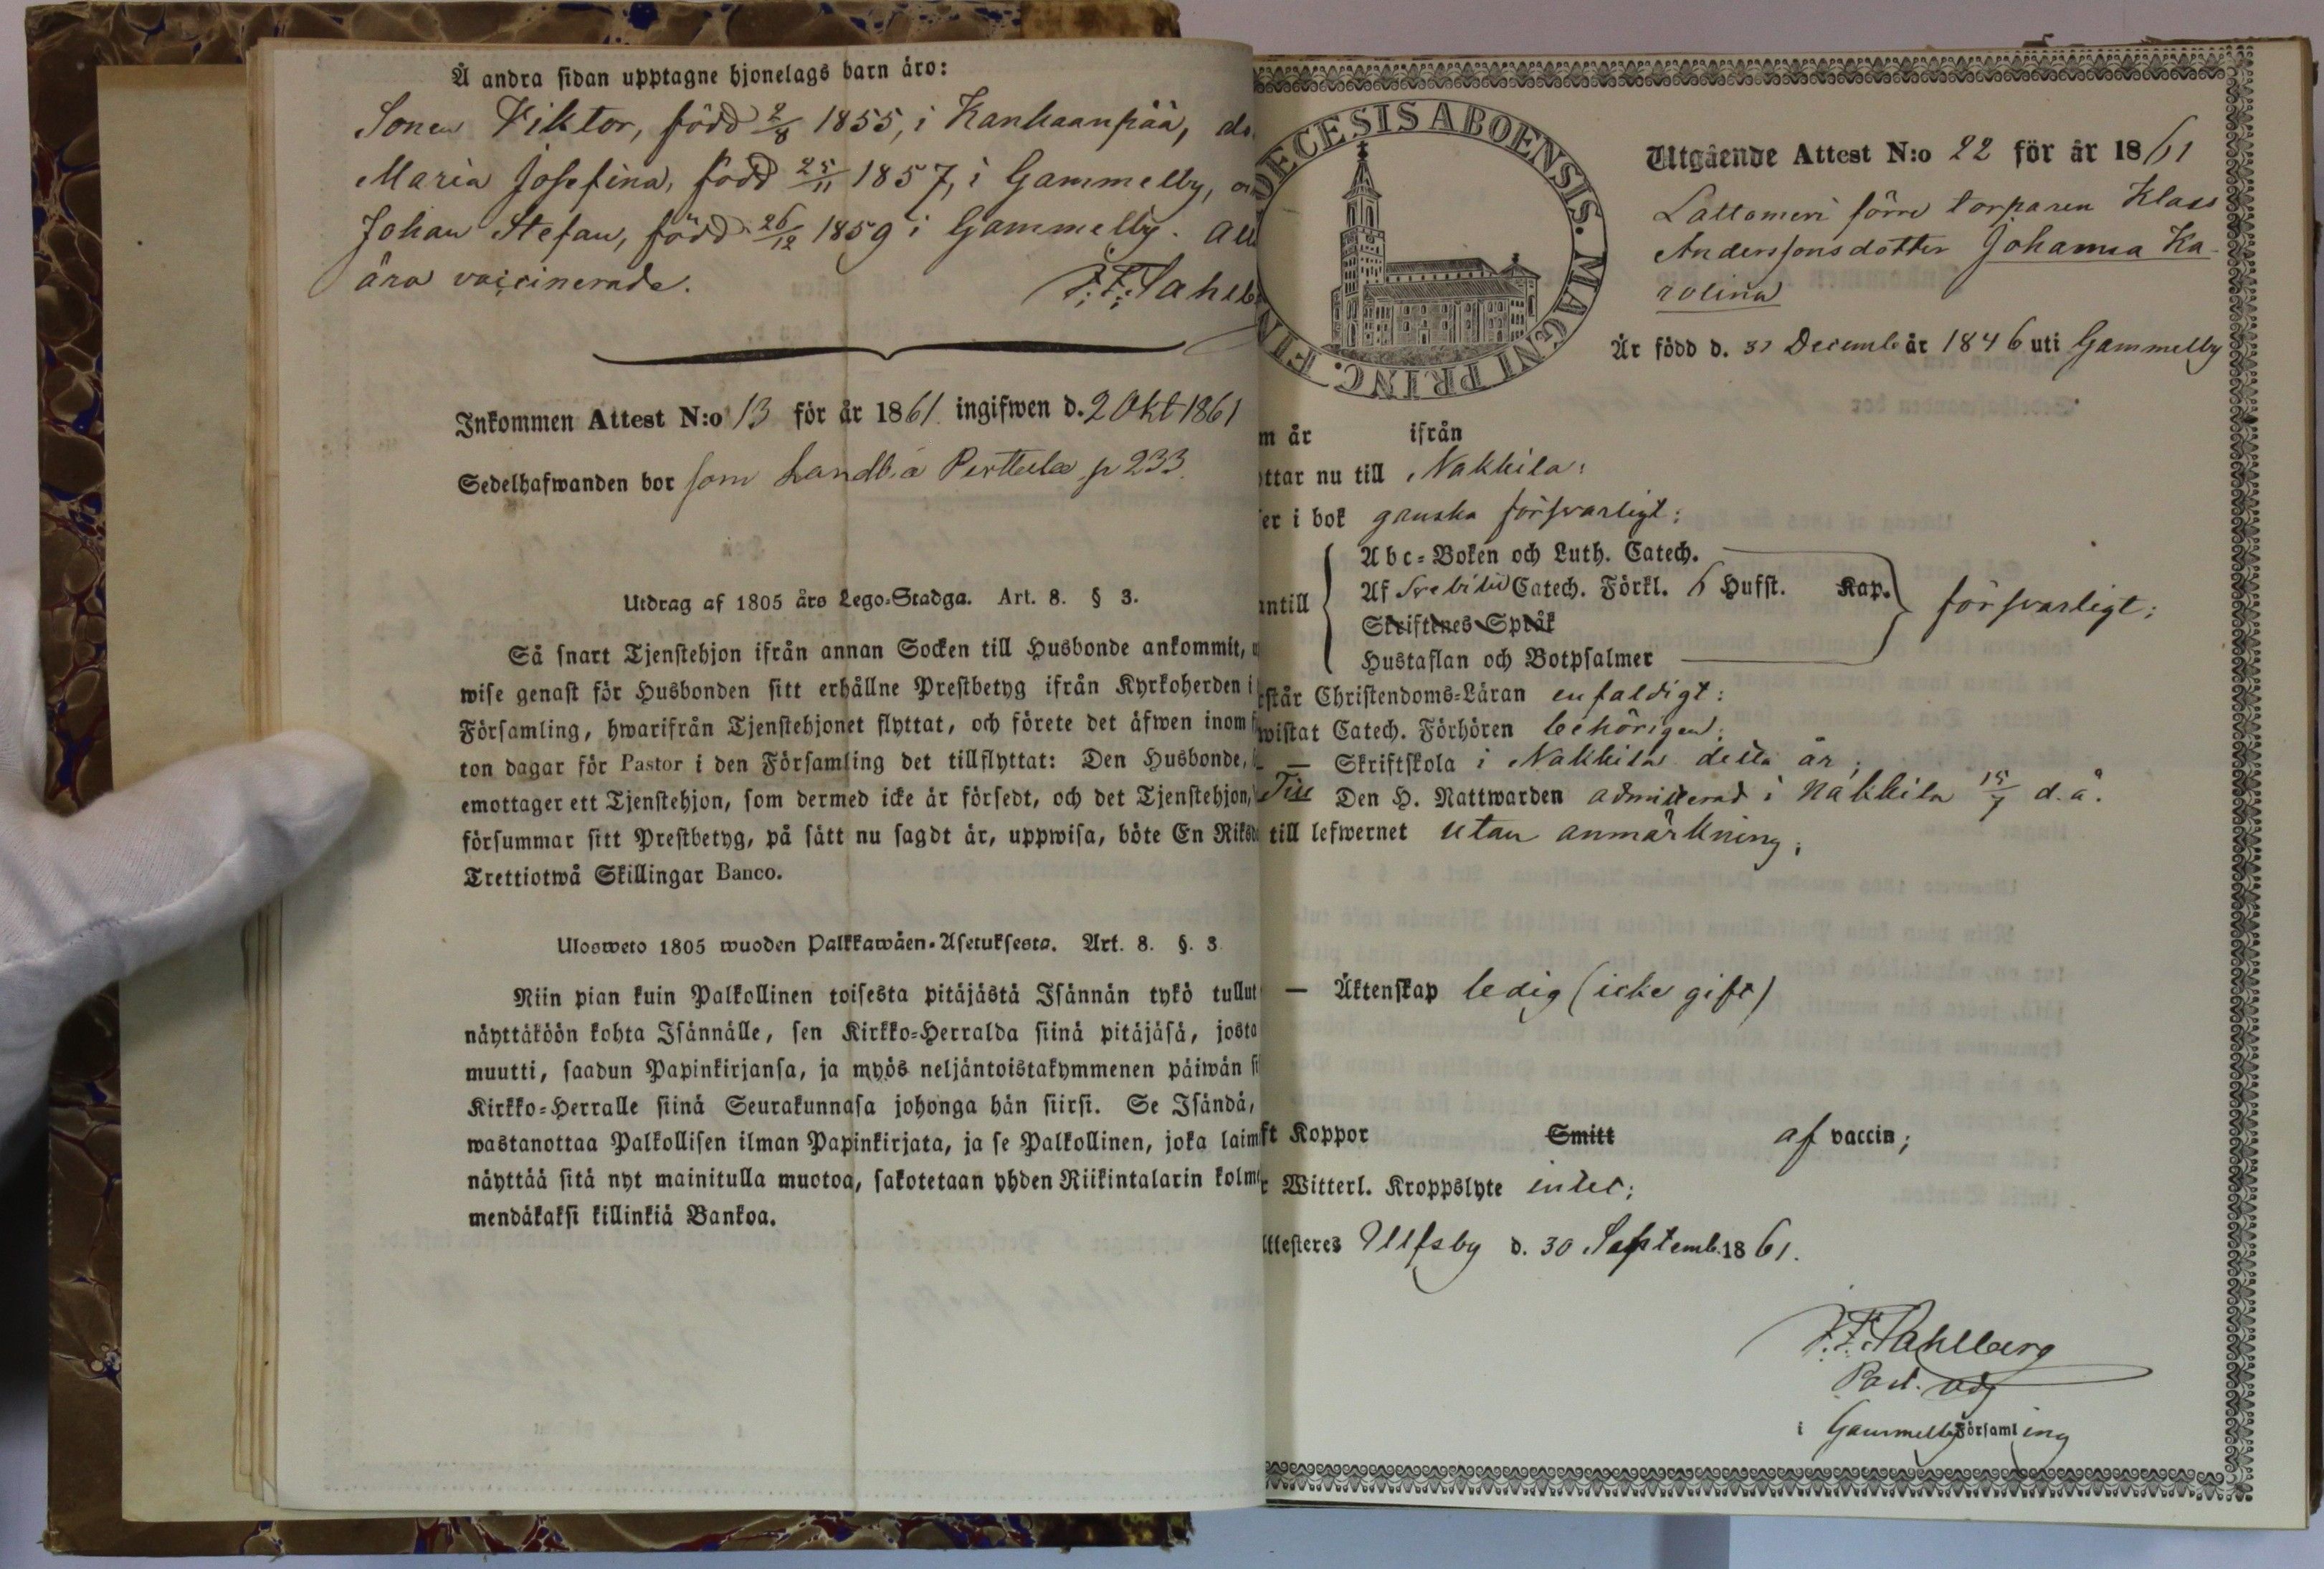 Å andra sidan upptagne hjonelags barn äro:
Sonen Viktor, född 2/8 1855, i Kankaanpää, do
Maria Josefina, född 25/11 1857, i Gammelby, o
Johan Stefan, född 26/12 1859 i Gammelby. All
äro vaccinerade.
F. F. Sahlb
Inkommen Attest N:o 13 för år 1861 ingifwen d. 2 Okt 1861
Sedelhafwanden bor som Landb. a Perttula p 233.
Utdrag af 1805 års Lego-Stadga. Art. 8. § 3.
Så snart Tjenstehjon ifrån annan Socken till Husbonde ankommit, u
wise genast för Husbonden sitt erhållne Prestbetyg ifrån Kyrkoherden i
Församling, hwarifrån Tjenstehjonet flyttat, och förete det äfwen inom f
ton dagar för Pastor i den Församling det tillflyttat: Den Husbonde,
emottager ett Tjenstehjon, som dermed icke är försedt, och det Tjenstehjon,
försummar sitt Prestbetyg, på sätt nu sagdt är, uppwisa, böte En Riksd
Trettiotwå Skillingar Banco.
Ulosweto 1805 wuoden Palkkawäen-Asetuksesta. Art. 8. §. 3
Niin pian kuin Palkollinen toisesta pitäjästä Isännän tykö tullut
näyttäköön kohta Isännälle, sen Kirkko-Herralda siinä pitäjäsä, josta
muutti, saadun Papinkirjansa, ja myös neljäntoistakymmenen päiwän si
Kirkko-Herralle siinä Seurakunnasa johonga hän siirsi. Se Isändä,
wastanottaa Palkollisen ilman Papinkirjata, ja se Palkollinen, joka laim
näyttää sitä nyt mainitulla muotoa, sakotetaan yhden Riikintalarin kolme
mendäkaksi killinkiä Bankoa.
DECESIS ABOENSIS. MAGNI PRINC. FIN
Utgående Attest N:o 22 för år 1861
Lattomeri förre torparen Klas
Anderssons dotter Johanna Ka-
rolina
Är född d. 31 Decemb. år 1846 uti Gammelby
m år ifrån
ttar nu till Nakkila;
er i bok ganska försvarligt;
Abc-Boken och Luth. Catech.
antill Af Svebilii Catech. Förkl. 6 Hufst. Kap. försvarligt;
Skriftenes Språk
Hustaflan och Botpsalmer
rstår Christendoms-Läran enfaldigt;
wistat Catech. Förhören behörigen;
— Skriftskola i Nakkila detta år;
Till Den H. Nattwarden admitterad i Nakkila 15/7 d. å.
till lefwernet utan anmärkning;
— Äktenskap ledig (icke gift)
ft Koppor Smitt af vaccin;
r Witterl. Kroppslyte intet;
ttesteres Ulfsby d. 30 Septemb. 1861.
F. F. Sahlberg
Past. adj
i Gammelby Församling